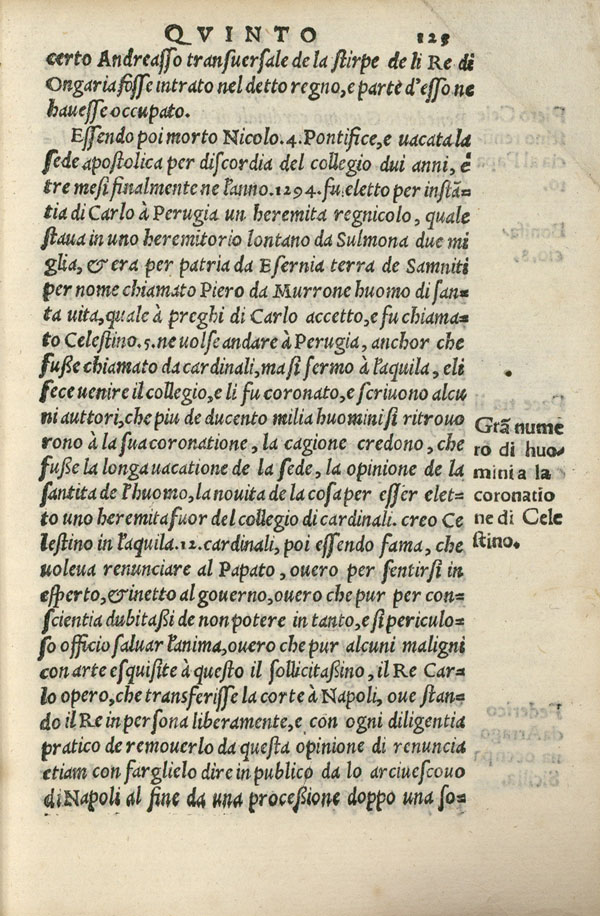 QVINTO 125
certo Andreasso transuersale de la stirpe de li Re di
Ongaria fosse intrato nel detto regno, e parte d'esso ne
hauesse occupato.
Essendo poi morto Nicolo.4.Pontifice, e uacata la
sede apostolica per discordia del collegio dui anni, é
tre mesi finalmente ne l'anno.1294.fu eletto per instā-
tia di Carlo à Perugia un heremita regnicolo, quale
staua in uno heremitorio lontano da Sulmona due mi
glia, & era per patria da Esernia terra de Samniti
per nome chiamato Piero da Murrone huomo di san-
ta uita, quale à preghi di Carlo accetto, e fu chiama-
to Celestino.5.ne uolse andare à Perugia, anchor che
fusse chiamato da cardinali, ma si fermo à l'aquila, e li
fece uenire il collegio, e li fu coronato, e scriuono alcu
ni auttori, che piu de ducento milia huomini si ritrouo
rono à la sua coronatione, la cagione credono, che
fusse la longa uacatione de la sede, la opinione de la
santita de l'huomo, la nouita de la cosa per esser elet-
to uno heremita fuor del collegio di cardinali. creo Ce
lestino in l'aquila.12.cardinali, poi essendo fama, che
uoleua renunciare al Papato, ouero per sentirsi in
esperto, & inetto al gouerno, ouero che pur per con-
scientia dubitassi de non potere in tanto, e si periculo-
so officio saluar l'anima, ouero che pur alcuni maligni
con arte esquisite à questo il sollicitassino, il Re Car-
lo opero, che transferisse la corte à Napoli, oue stan-
do il Re in persona liberamente, e con ogni diligentia
pratico de remouerlo da questa opinione di renuncia
etiam con farglielo dire in publico da lo arciuescouo
di Napoli al fine da una processione doppo una so-
Grā nume
ro di huo-
mini a la
coronatio
ne di Cele
stino.